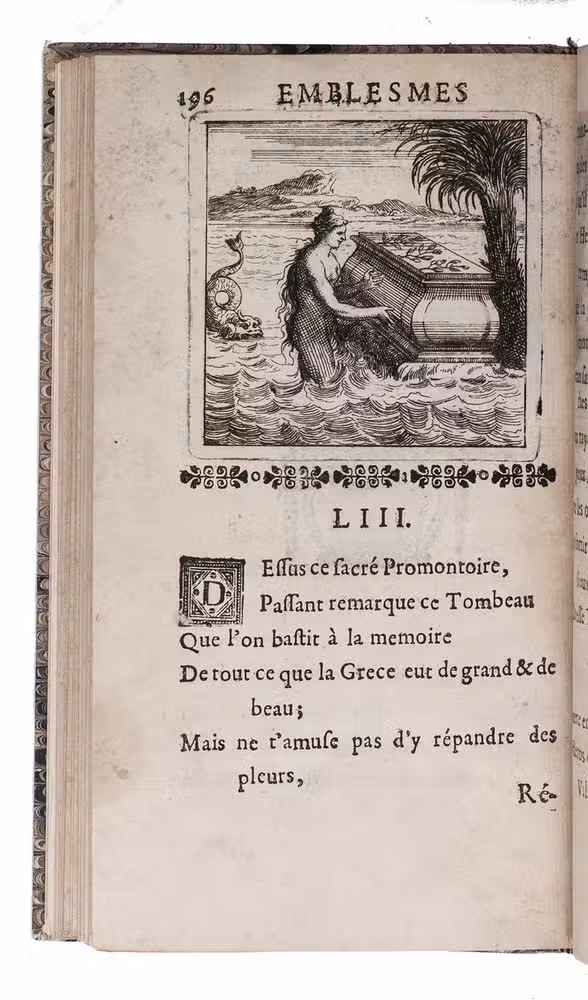 196 EMBLESMES
LIII.
DEſſus ce ſacré Promontoire,
Paſſant remarque ce Tombeau
Que l'on baſtit à la memoire
De tout ce que la Grece eut de grand & de
beau;
Mais ne t'amuſe pas d'y répandre des
pleurs,
Ré-